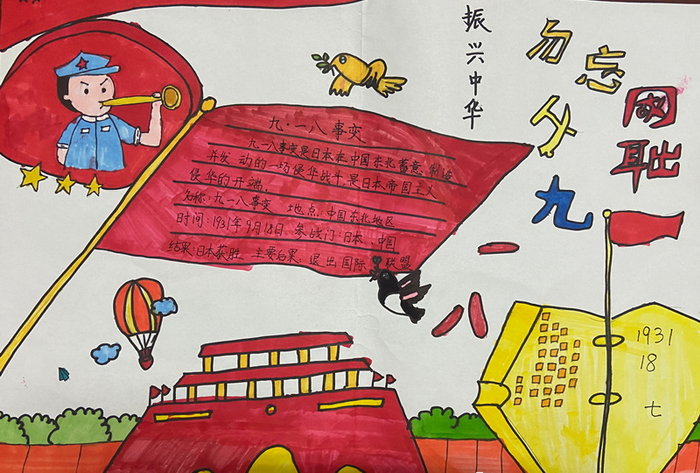 振兴中华
勿忘
国耻
九
一
八
九·一八事变
九一八事变是日本在中国东北蓄意制造
并发动的一场侵华战斗.是日本帝国主义
侵华的开端,
名称:九一八事变 地点:中国东北地区
时间:1931年9月18日.参战门:日本、中国
结果:日本获胜. 主要后果:退出国际 联盟
1931
18
七